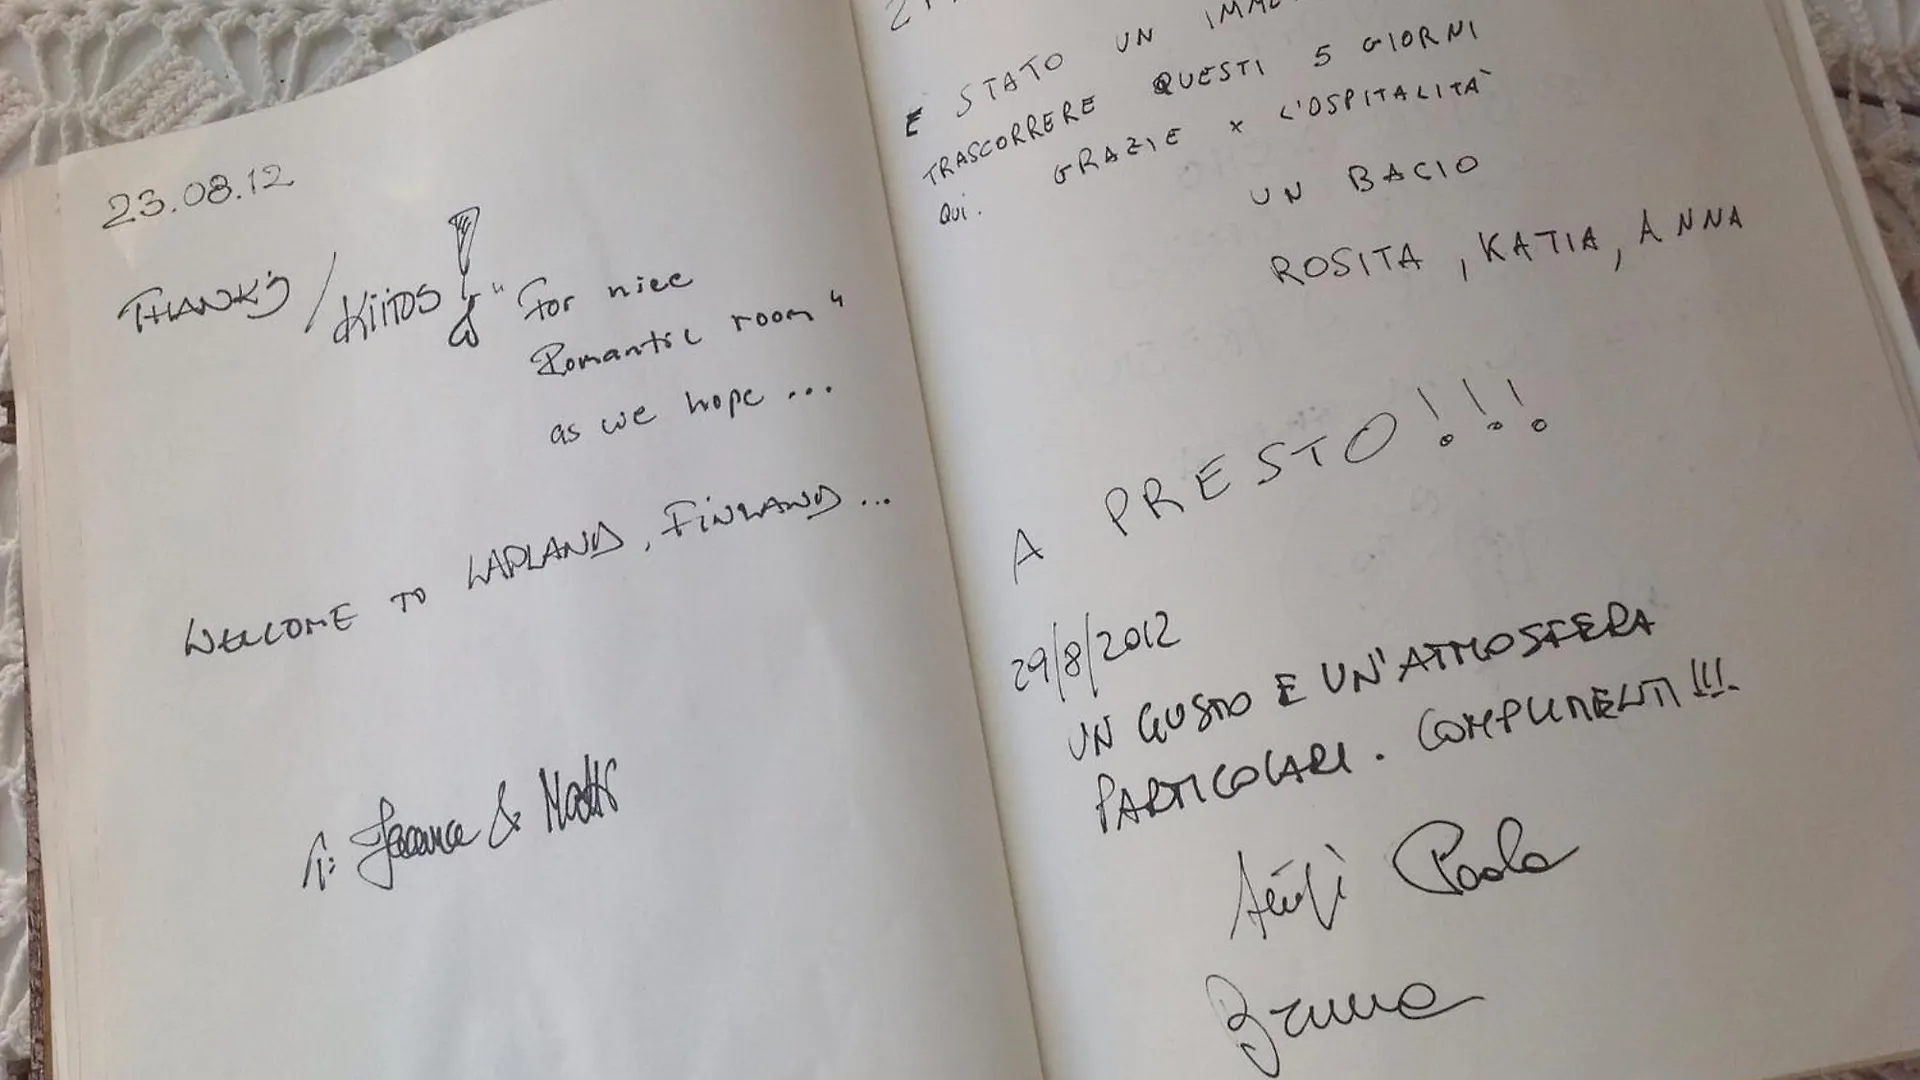 23.08.12
THANKS / KIITOS! "For nice
Romantic room"
as we hope ...
WELCOME TO LAPLAND, FINLAND ...
T: & Matti
E STATO UN
TRASCORRERE QUESTI 5 GIORNI
QUI. GRAZIE x L'OSPITALITÀ
UN BACIO
ROSITA, KATIA, ANNA
A PRESTO!!!
29/8/2012
UN GUSTO E UN'ATMOSFERA
PARTICOLARI. COMPLIMENTI!!!
Paola
Bruna